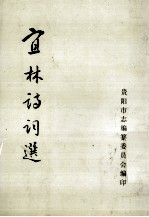 宜林诗词選
贵阳市志编纂委员会编印